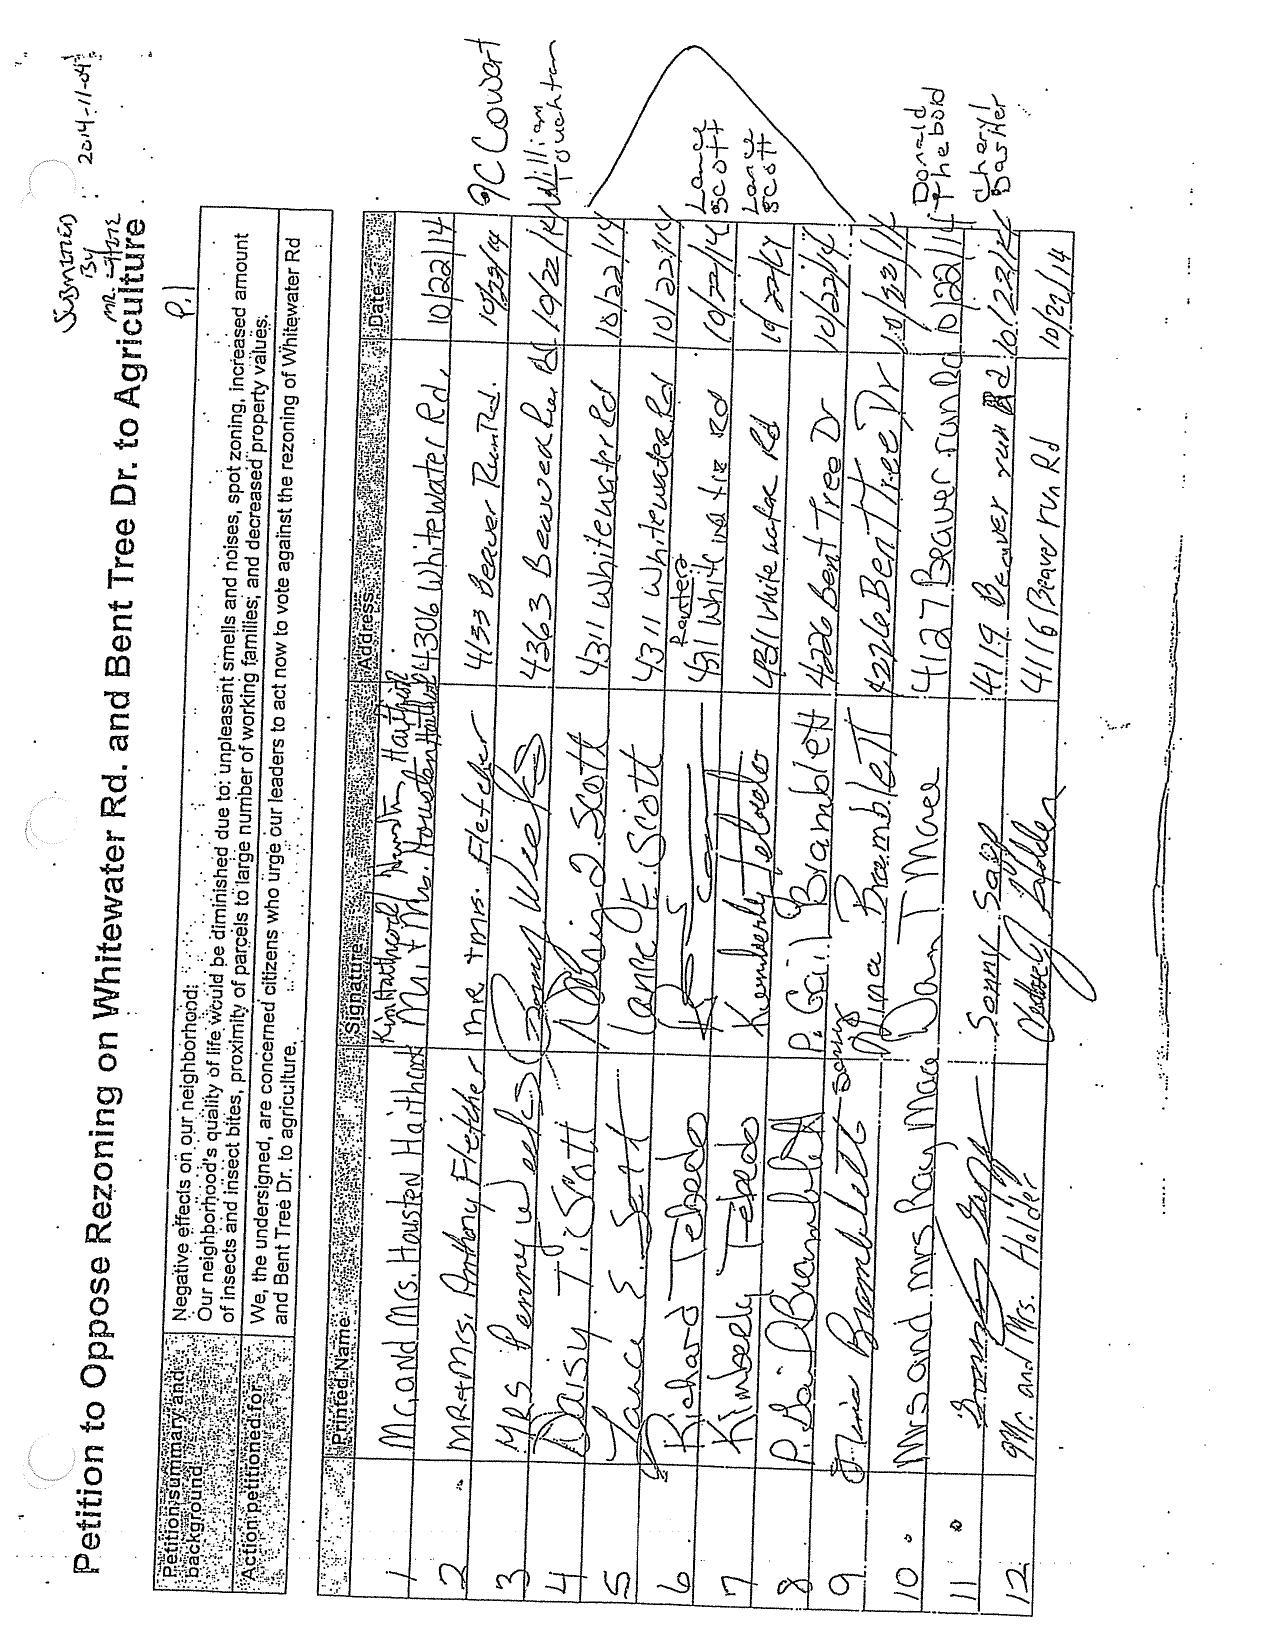 SUBMITTED
BY
MR.
2014-11-04
Petition to Oppose Rezoning on Whitewater Rd. and Bent Tree Dr. to Agriculture
P.1
Petition summary and background
Negative effects on our neighborhood:
Our neighborhood's quality of life would be diminished due to: unpleasant smells and noises, spot zoning, increased amount
of insects and insect bites, proximity of parcels to large number of working families, and decreased property values.
Action petitioned for
We, the undersigned, are concerned citizens who urge our leaders to act now to vote against the rezoning of Whitewater Rd
and Bent Tree Dr. to agriculture.
Printed Name Signature Address Date
Kim Haithcock
1 Mr. and Mrs. Housten Haithcock Mr. + Mrs. Housten 4306 Whitewater Rd. 10/22/14
2 MR & Mrs. Anthony Fletcher MR. + Mrs. Fletcher 4133 Beaver Run Rd. 10/23/14 JC Cowart
3 MRS Penny Weeks Penny Weeks 4363 Beaver Run Rd 10/22/14 William
4 Daisy T. Scott Scott 4311 Whitewater Rd 10/22/14
5 Lance E. Scott Lance E. Scott 4311 Whitewater Rd 10/22/14
6 Richard Tebedo White Rd 10/22/14 Lance Scott
7 Kimberly Tebedo Kimberly Tebedo Whitewater Rd 10/22/14 Lance Scott
8 P. Gail Bramblett P. Gail Bramblett 4226 Bent Tree Dr 10/22/14
9 Bramblett Bramblett 4226 Bent Tree Dr 10/22/14
10 Mrs and Mrs Ray Mace Dan T Mace 4127 Beaver run Rd 10/22/14 Donald Thebold
11 Sonny 4119 Beaver run Rd 10/22/14 Cheryl
12 Mr. and Mrs. Holder Holder 4116 Beaver run Rd 10/22/14